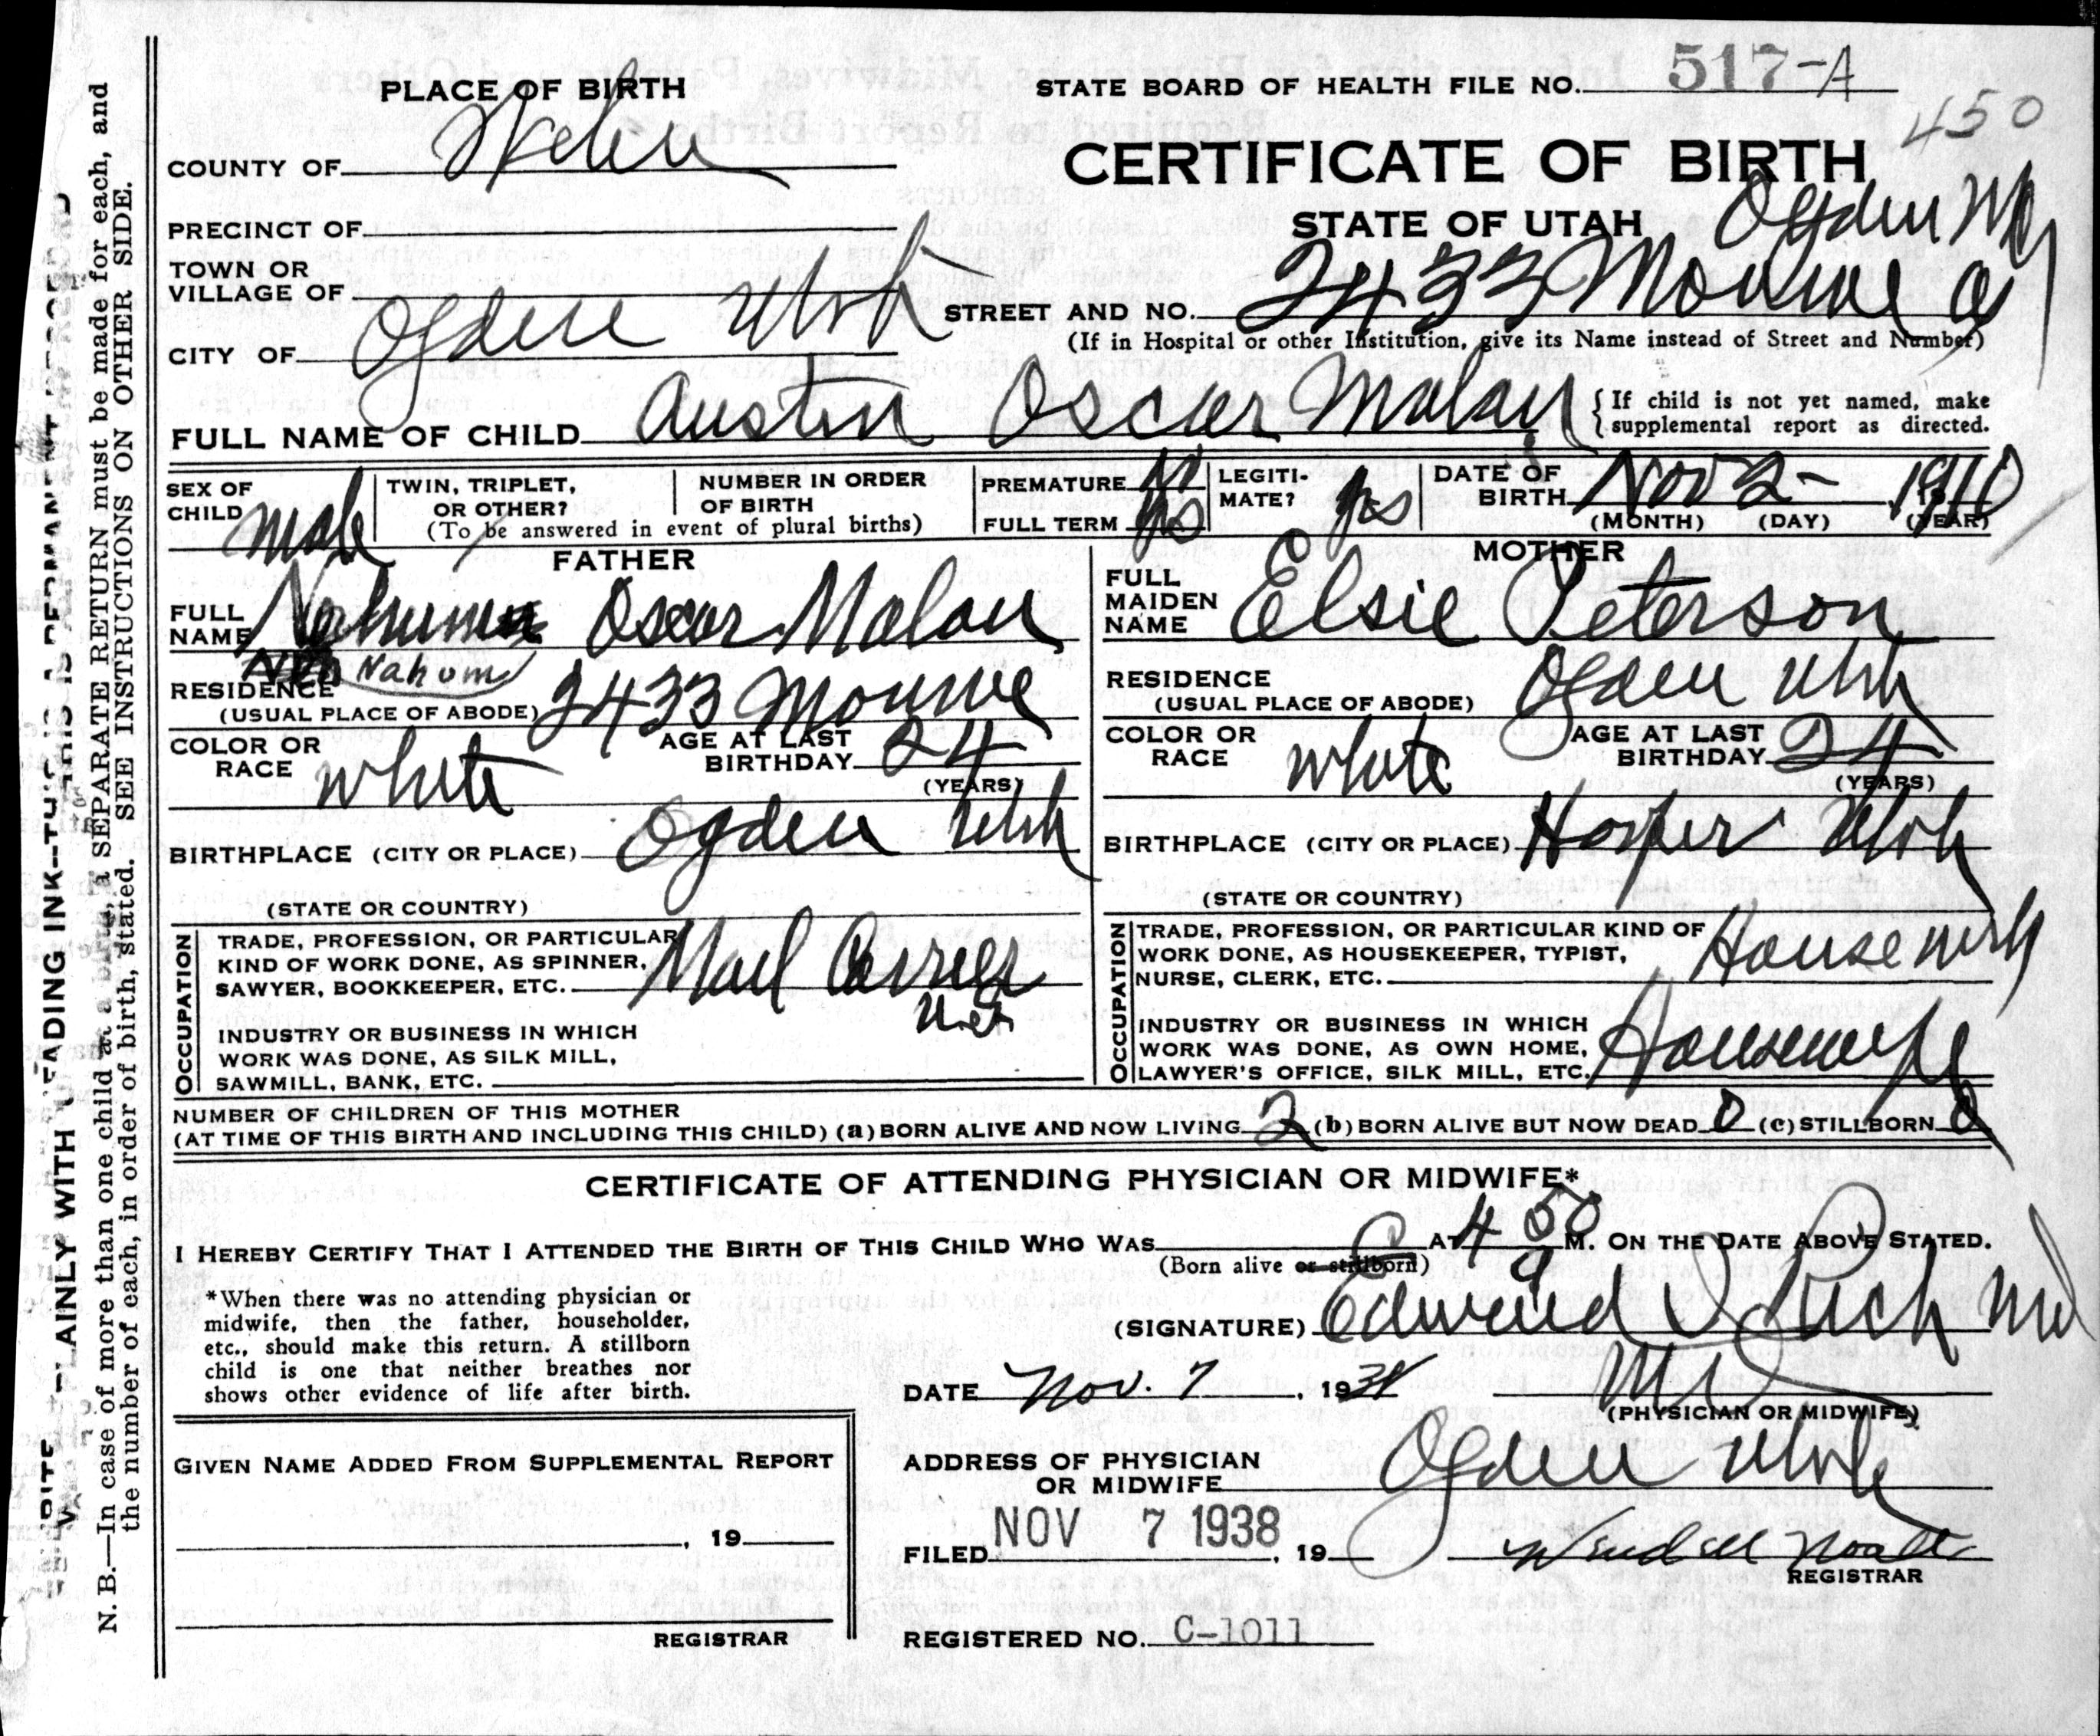 PLACE OF BIRTH
STATE BOARD OF HEALTH FILE NO. 517-A
450
COUNTY OF Weber
CERTIFICATE OF BIRTH
STATE OF UTAH
Ogden
PRECINCT OF
TOWN OR
VILLAGE OF
STREET AND NO. 2433 Monroe
(If in Hospital or other Institution, give its Name instead of Street and Number)
CITY OF Ogden Utah
FULL NAME OF CHILD Austin Oscar Malan
{ If child is not yet named, make
supplemental report as directed.
SEX OF
CHILD male
TWIN, TRIPLET,
OR OTHER?
NUMBER IN ORDER
OF BIRTH
(To be answered in event of plural births)
PREMATURE
FULL TERM yes
LEGITI-
MATE? yes
DATE OF
BIRTH Nov 2- 1910
(MONTH) (DAY) (YEAR)
FATHER
FULL
NAME Oscar Malan
Nahum
RESIDENCE
(USUAL PLACE OF ABODE) 2433 Monroe
COLOR OR
RACE white
AGE AT LAST
BIRTHDAY 24
(YEARS)
BIRTHPLACE (CITY OR PLACE) Ogden Utah
(STATE OR COUNTRY)
OCCUPATION
TRADE, PROFESSION, OR PARTICULAR
KIND OF WORK DONE, AS SPINNER,
SAWYER, BOOKKEEPER, ETC. Mail Carrier
INDUSTRY OR BUSINESS IN WHICH
WORK WAS DONE, AS SILK MILL,
SAWMILL, BANK, ETC.
MOTHER
FULL
MAIDEN
NAME Elsie Peterson
RESIDENCE
(USUAL PLACE OF ABODE) Ogden Utah
COLOR OR
RACE white
AGE AT LAST
BIRTHDAY 24
(YEARS)
BIRTHPLACE (CITY OR PLACE) Hooper Utah
(STATE OR COUNTRY)
OCCUPATION
TRADE, PROFESSION, OR PARTICULAR KIND OF
WORK DONE, AS HOUSEKEEPER, TYPIST,
NURSE, CLERK, ETC. Housewife
INDUSTRY OR BUSINESS IN WHICH
WORK WAS DONE, AS OWN HOME,
LAWYER'S OFFICE, SILK MILL, ETC. Housewife
NUMBER OF CHILDREN OF THIS MOTHER
(AT TIME OF THIS BIRTH AND INCLUDING THIS CHILD) (a) BORN ALIVE AND NOW LIVING 2 (b) BORN ALIVE BUT NOW DEAD 0 (c) STILLBORN 0
CERTIFICATE OF ATTENDING PHYSICIAN OR MIDWIFE*
I HEREBY CERTIFY THAT I ATTENDED THE BIRTH OF THIS CHILD WHO WAS AT 4 50 M. ON THE DATE ABOVE STATED.
(Born alive or stillborn)
*When there was no attending physician or
midwife, then the father, householder,
etc., should make this return. A stillborn
child is one that neither breathes nor
shows other evidence of life after birth.
(SIGNATURE) Edward I Rich MD
DATE Nov. 7, 1938
MD
(PHYSICIAN OR MIDWIFE)
GIVEN NAME ADDED FROM SUPPLEMENTAL REPORT
, 19
REGISTRAR
ADDRESS OF PHYSICIAN
OR MIDWIFE Ogden Utah
FILED NOV 7 1938, 19
REGISTRAR
REGISTERED NO. C-1011
N. B.—In case of more than one child at a birth, a SEPARATE RETURN must be made for each, and
the number of each, in order of birth, stated. SEE INSTRUCTIONS ON OTHER SIDE.